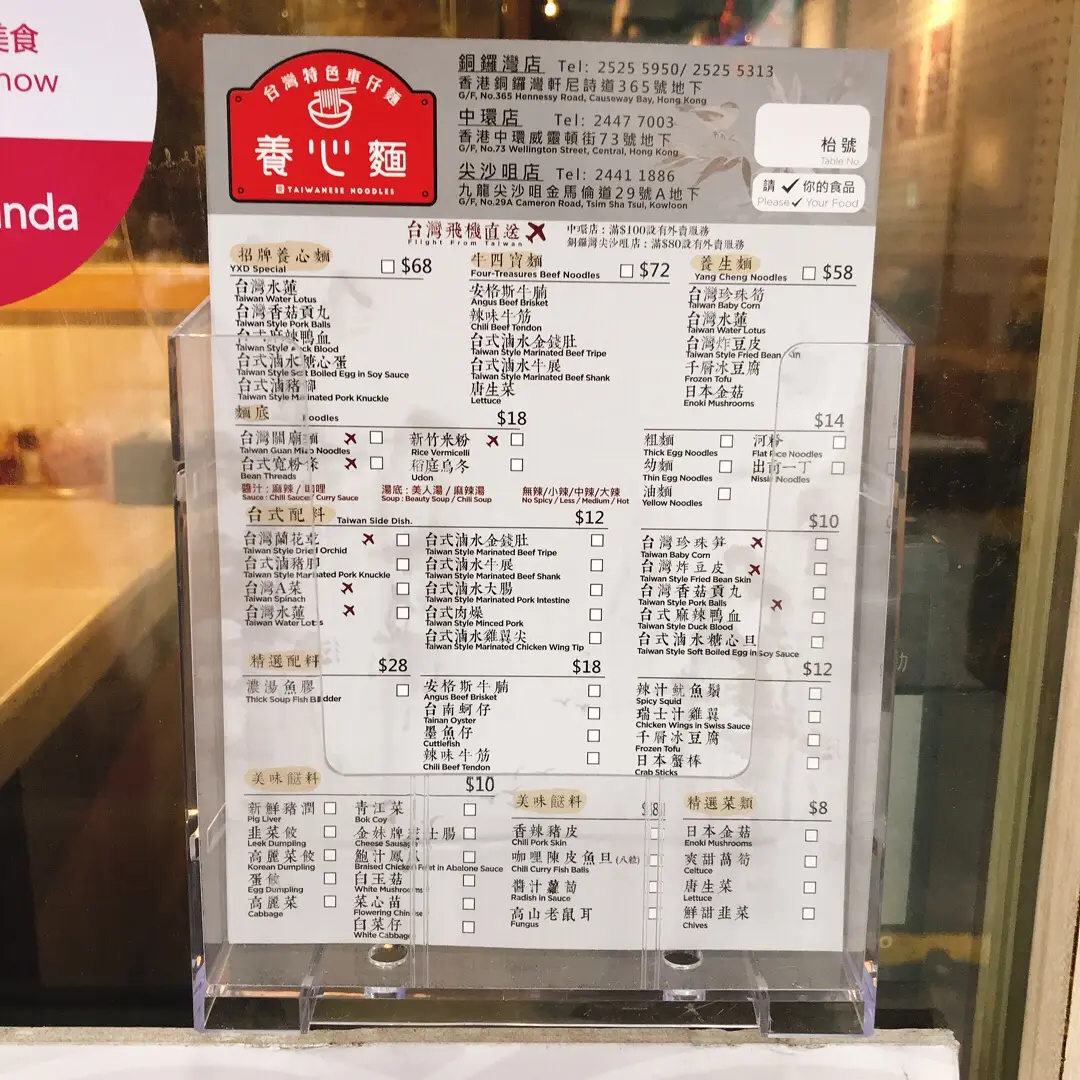 美食
now
anda
台灣特色車仔麵
養心麵
TAIWANESE NOODLES
銅鑼灣店 Tel: 2525 5950/ 2525 5313
香港銅鑼灣軒尼詩道365號地下
G/F, No.365 Hennessy Road, Causeway Bay, Hong Kong
中環店 Tel: 2447 7003
香港中環威靈頓街73號地下
G/F, No.73 Wellington Street, Central, Hong Kong
尖沙咀店 Tel: 2441 1886
九龍尖沙咀金馬倫道29號A地下
G/F, No.29A Cameron Road, Tsim Sha Tsui, Kowloon
枱號
Table No.
請✓你的食品
Please✓Your Food
台灣飛機直送
Flight From Taiwan
中環店：滿$100設有外賣服務
銅鑼灣尖沙咀店：滿$80設有外賣服務
招牌養心麵 $68
YXD Special
台灣水蓮
Taiwan Water Lotus
台灣香菇貢丸
Taiwan Style Pork Balls
台式麻辣鴨血
Taiwan Style Duck Blood
台式滷水糖心蛋
Taiwan Style Soft Boiled Egg in Soy Sauce
台式滷豬腳
Taiwan Style Marinated Pork Knuckle
牛四寶麵 $72
Four-Treasures Beef Noodles
安格斯牛腩
Angus Beef Brisket
辣味牛筋
Chili Beef Tendon
台式滷水金錢肚
Taiwan Style Marinated Beef Tripe
台式滷水牛展
Taiwan Style Marinated Beef Shank
唐生菜
Lettuce
養生麵 $58
Yang Cheng Noodles
台灣珍珠筍
Taiwan Baby Corn
台灣水蓮
Taiwan Water Lotus
台灣炸豆皮
Taiwan Style Fried Bean Skin
千層冰豆腐
Frozen Tofu
日本金菇
Enoki Mushrooms
麵底 Noodles $18
台灣關廟麵
Taiwan Guan Miao Noodles
台式寬粉條
Bean Threads
新竹米粉
Rice Vermicelli
稻庭烏冬
Udon
$14
粗麵
Thick Egg Noodles
幼麵
Thin Egg Noodles
油麵
Yellow Noodles
河粉
Flat Rice Noodles
出前一丁
Nissin Noodles
醬汁：麻辣 / 咖哩
Sauce : Chili Sauce / Curry Sauce
湯底：美人湯 / 麻辣湯
Soup : Beauty Soup / Chili Soup
無辣/小辣/中辣/大辣
No Spicy / Less / Medium / Hot
台式配料 Taiwan Side Dish. $12
台灣蘭花乾
Taiwan Style Dried Orchid
台式滷豬腳
Taiwan Style Marinated Pork Knuckle
台灣A菜
Taiwan Spinach
台灣水蓮
Taiwan Water Lotus
台式滷水金錢肚
Taiwan Style Marinated Beef Tripe
台式滷水牛展
Taiwan Style Marinated Beef Shank
台式滷水大腸
Taiwan Style Marinated Pork Intestine
台式肉燥
Taiwan Style Minced Pork
台式滷水雞翼尖
Taiwan Style Marinated Chicken Wing Tip
$10
台灣珍珠笋
Taiwan Baby Corn
台灣炸豆皮
Taiwan Style Fried Bean Skin
台灣香菇貢丸
Taiwan Style Pork Balls
台式麻辣鴨血
Taiwan Style Duck Blood
台式滷水糖心旦
Taiwan Style Soft Boiled Egg in Soy Sauce
精選配料 $28
濃湯魚膠
Thick Soup Fish Bladder
$18
安格斯牛腩
Angus Beef Brisket
台南蚵仔
Tainan Oyster
墨魚仔
Cuttlefish
辣味牛筋
Chili Beef Tendon
$12
辣汁魷魚鬚
Spicy Squid
瑞士汁雞翼
Chicken Wings in Swiss Sauce
千層冰豆腐
Frozen Tofu
日本蟹棒
Crab Sticks
美味餸料 $10
新鮮豬潤
Pig Liver
韭菜餃
Leek Dumpling
高麗菜餃
Korean Dumpling
蛋餃
Egg Dumpling
高麗菜
Cabbage
青江菜
Bok Coy
金妹牌芝士腸
Cheese Sausage
鮑汁鳳爪
Braised Chicken Feet in Abalone Sauce
白玉菇
White Mushrooms
菜心苗
Flowering Chinese
白菜仔
White Cabbage
美味餸料 $8
香辣豬皮
Chili Pork Skin
咖哩陳皮魚旦(八粒)
Chili Curry Fish Balls
醬汁蘿蔔
Radish in Sauce
高山老鼠耳
Fungus
精選菜類 $8
日本金菇
Enoki Mushrooms
爽甜萵筍
Celtuce
唐生菜
Lettuce
鮮甜韭菜
Chives